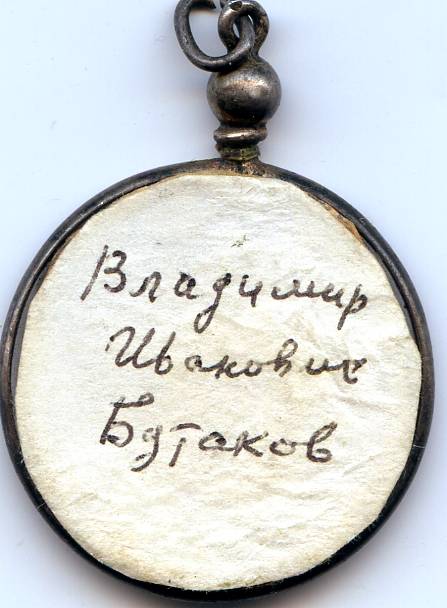 Владимир
Иванович
Бутаков